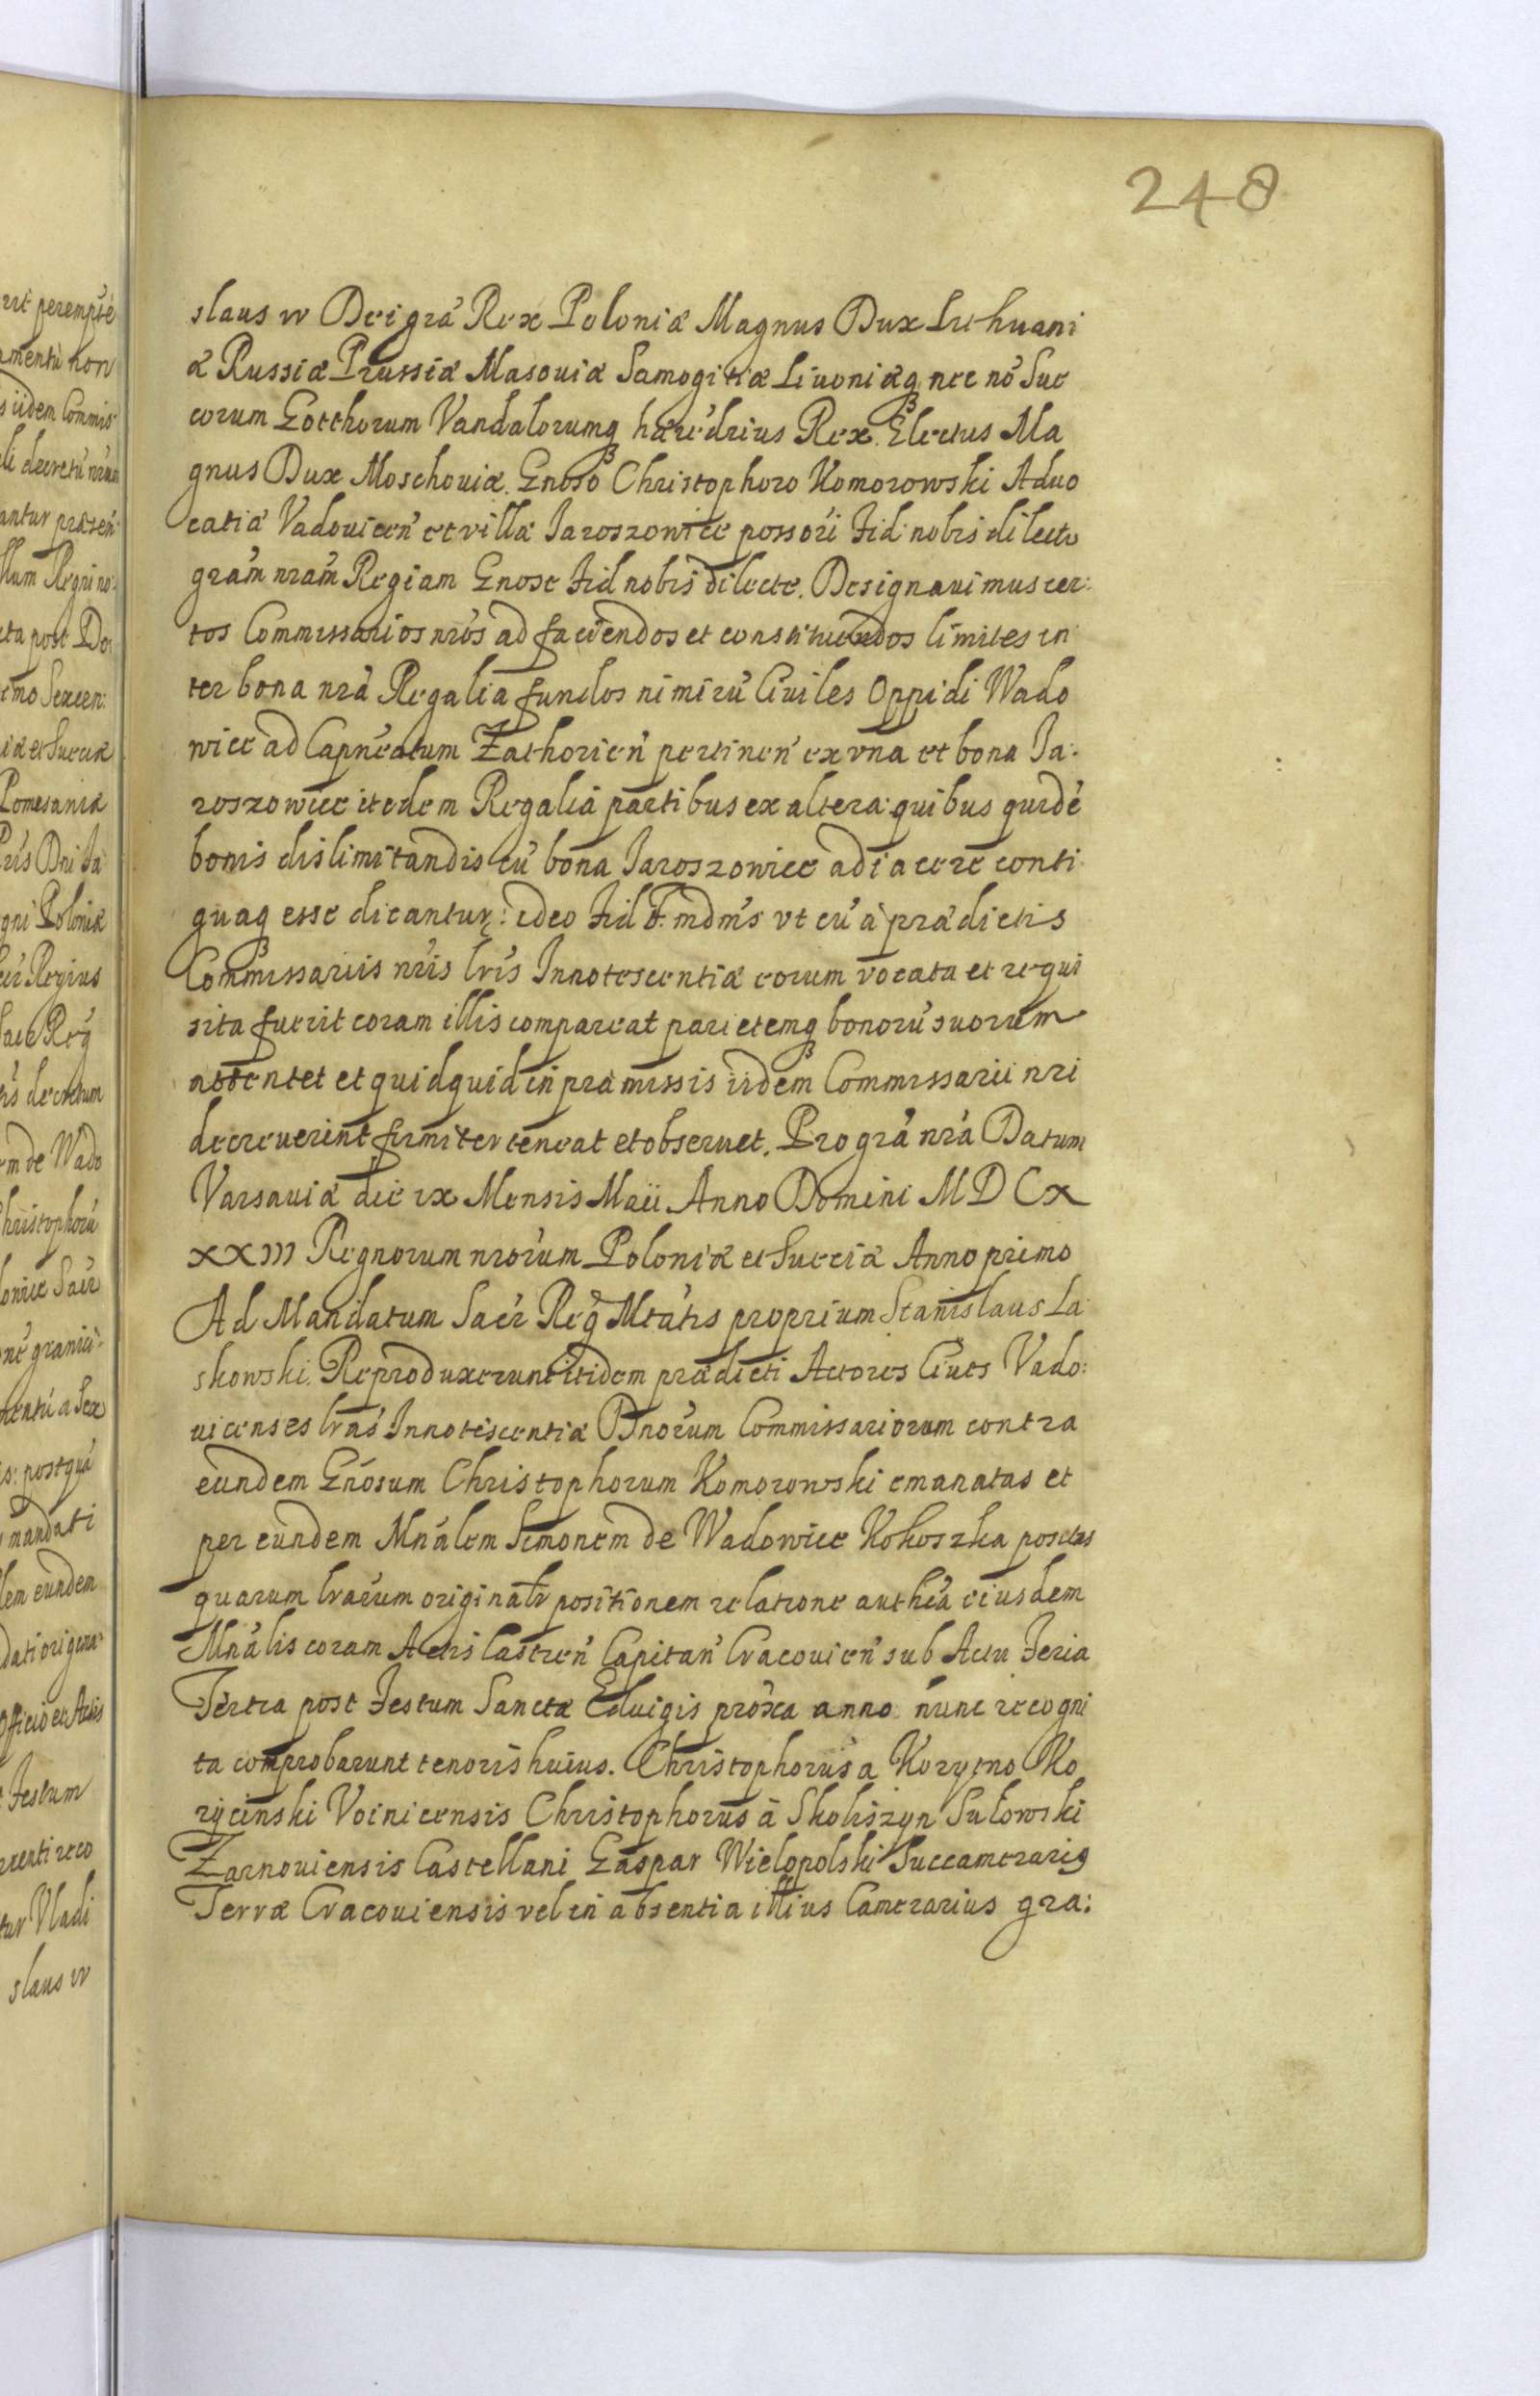 248
slaus IV Dei gra Rex Poloniæ Magnus Dux Lithuani
æ Russiæ Prussiæ Masouiæ Samogitiæ Liuoniæq nec nō Sue
corum Gotthorum Vandalorumq hæredrius Rex Electus Ma
gnus Dux Moschouiæ. Gnoso Christophoro Komorowski Aduo
catiæ Vadouicen et villæ Jaroszowice possori fid nobis dilecto
gram nram Regiam Gnose fid nobis dilecte. Designauimus cer:
tos Commissarios nros ad faciendos et constituendos limites in
ter bona nra Regalia fundos nimirū Ciuiles Oppidi Wado
wice ad Capneatum Zathorien pertinen ex vna et bona Ja:
roszowice itedem Regalia partibus ex altera quibus quidē
bonis dislimitandis cū bona Jaroszowice adiacere conti
guaq esse dicantur: ideo fid T. mdms vt cū a prædictis
Commissariis nris lris Innotescentiæ eorum vocata et requi
sita fuerit coram illis compareat parietemq bonorū suorum
attentet et quidquid in præmissis iidem Commissarii nri
decreuerint firmiter teneat et obseruet. Pro gra nra Datum
Varsauiæ die IX Mensis Maii Anno Domini MDCX
XXIII Regnorum nrorum Poloniæ et Sueciæ Anno primo
Ad Mandatum Sacr Reg Mtatis proprium Stanislaus La
skowski. Reproduxerunt itidem prædicti Actores Ciues Vado:
uicenses lras Innotescentiæ Dnorum Commissariorum contra
eundem Gnosum Christophorum Komorowski emanatas et
per eundem Mnalem Simonem de Wadowice Kokoszka positas
quarum lrarum originalr positionem relatione authca eiusdem
Mnalis coram Actis Castren Capitan Cracouien sub Actu Feria
Tertia post Festum Sanctæ Eduigis proxa anno nunc recogni
ta comprobarunt tenoris huius. Christophorus a Korytno Ko
rycinski Voinicensis Christophorus a Skokiszyn Sułowski
Zarnouiensis Castellani Gaspar Wielopolski Succamerarig
Terræ Cracouiensis vel in absentia illius Camerarius gra: